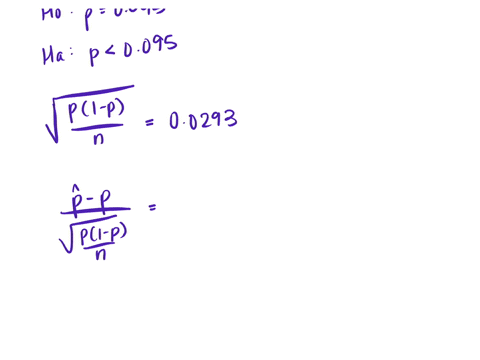 Ho: p = 0.095
Ha: p < 0.095
√(p(1-p)/n) = 0.0293
(p̂ - p)/√(p(1-p)/n) =